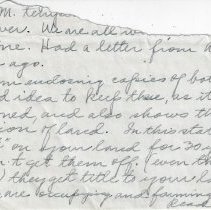 M.
ver. We are all w
ne. Had a letter from
ago.
m enclosing copies of bo
d idea to keep these, as it
ned, and also shows th
ion of land. In this stat
" on your land for 30 y
t get them off. even th
) they get title to your la
are occupying and farming
Read